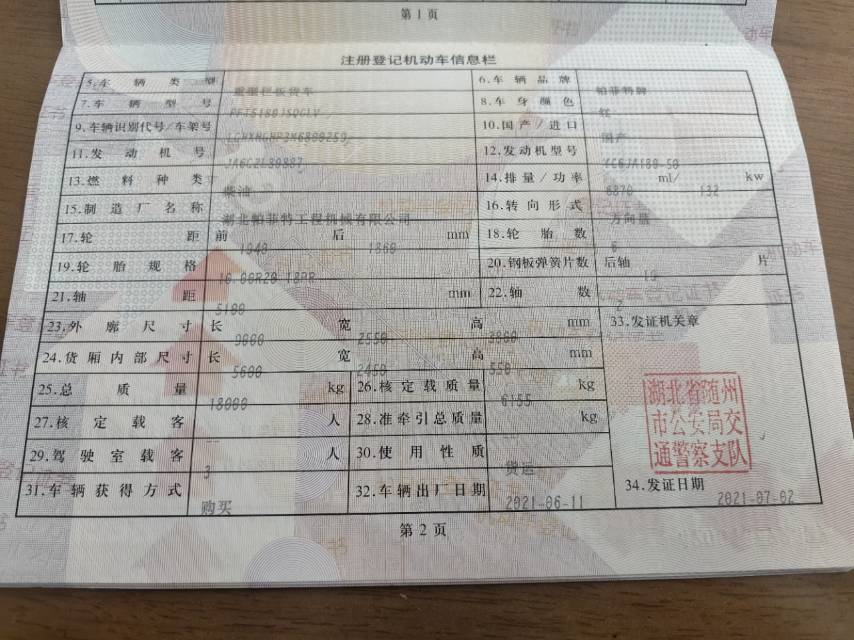 第1页
注册登记机动车信息栏
5.车辆类型 重型栏板货车 6.车辆品牌 帕菲特牌
7.车辆型号 8.车身颜色 红
9.车辆识别代号/车架号 10.国产/进口 国产
11.发动机号 12.发动机型号 YC6JA180-50
13.燃料种类 柴油 14.排量/功率 6870 ml/ 132 kw
15.制造厂名称 湖北帕菲特工程机械有限公司 16.转向形式 方向盘
17.轮距 前 1940 后 1860 mm 18.轮胎数 6
19.轮胎规格 10.00R20 18PR 20.钢板弹簧片数 后轴 10 片
21.轴距 5100 mm 22.轴数 2
23.外廓尺寸 长 9000 宽 2550 高 mm 33.发证机关章
24.货厢内部尺寸 长 5600 宽 2450 高 550 mm
25.总质量 18000 kg 26.核定载质量 6155 kg
27.核定载客 -- 人 28.准牵引总质量 -- kg
29.驾驶室载客 3 人 30.使用性质 货运
31.车辆获得方式 购买 32.车辆出厂日期 2021-06-11 34.发证日期 2021-07-02
湖北省随州
市公安局交
通警察支队
第2页